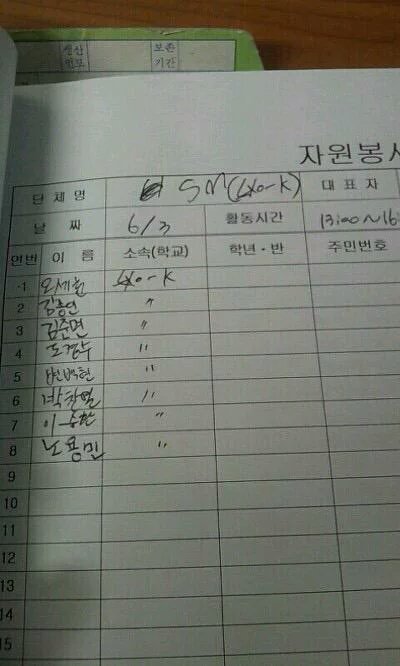 생산 보존
기간
자원봉사
단체명 SM(EXO-K) 대표자
날짜 6/3 활동시간 13:00~16:
연번 이름 소속(학교) 학년·반 주민번호
1 오세훈 EXO-K
2 김종인 〃
3 김준면 〃
4 도경수 〃
5 변백현 〃
6 박찬열 〃
7 이승환 〃
8 노용민 〃
9
10
11
12
13
14
15